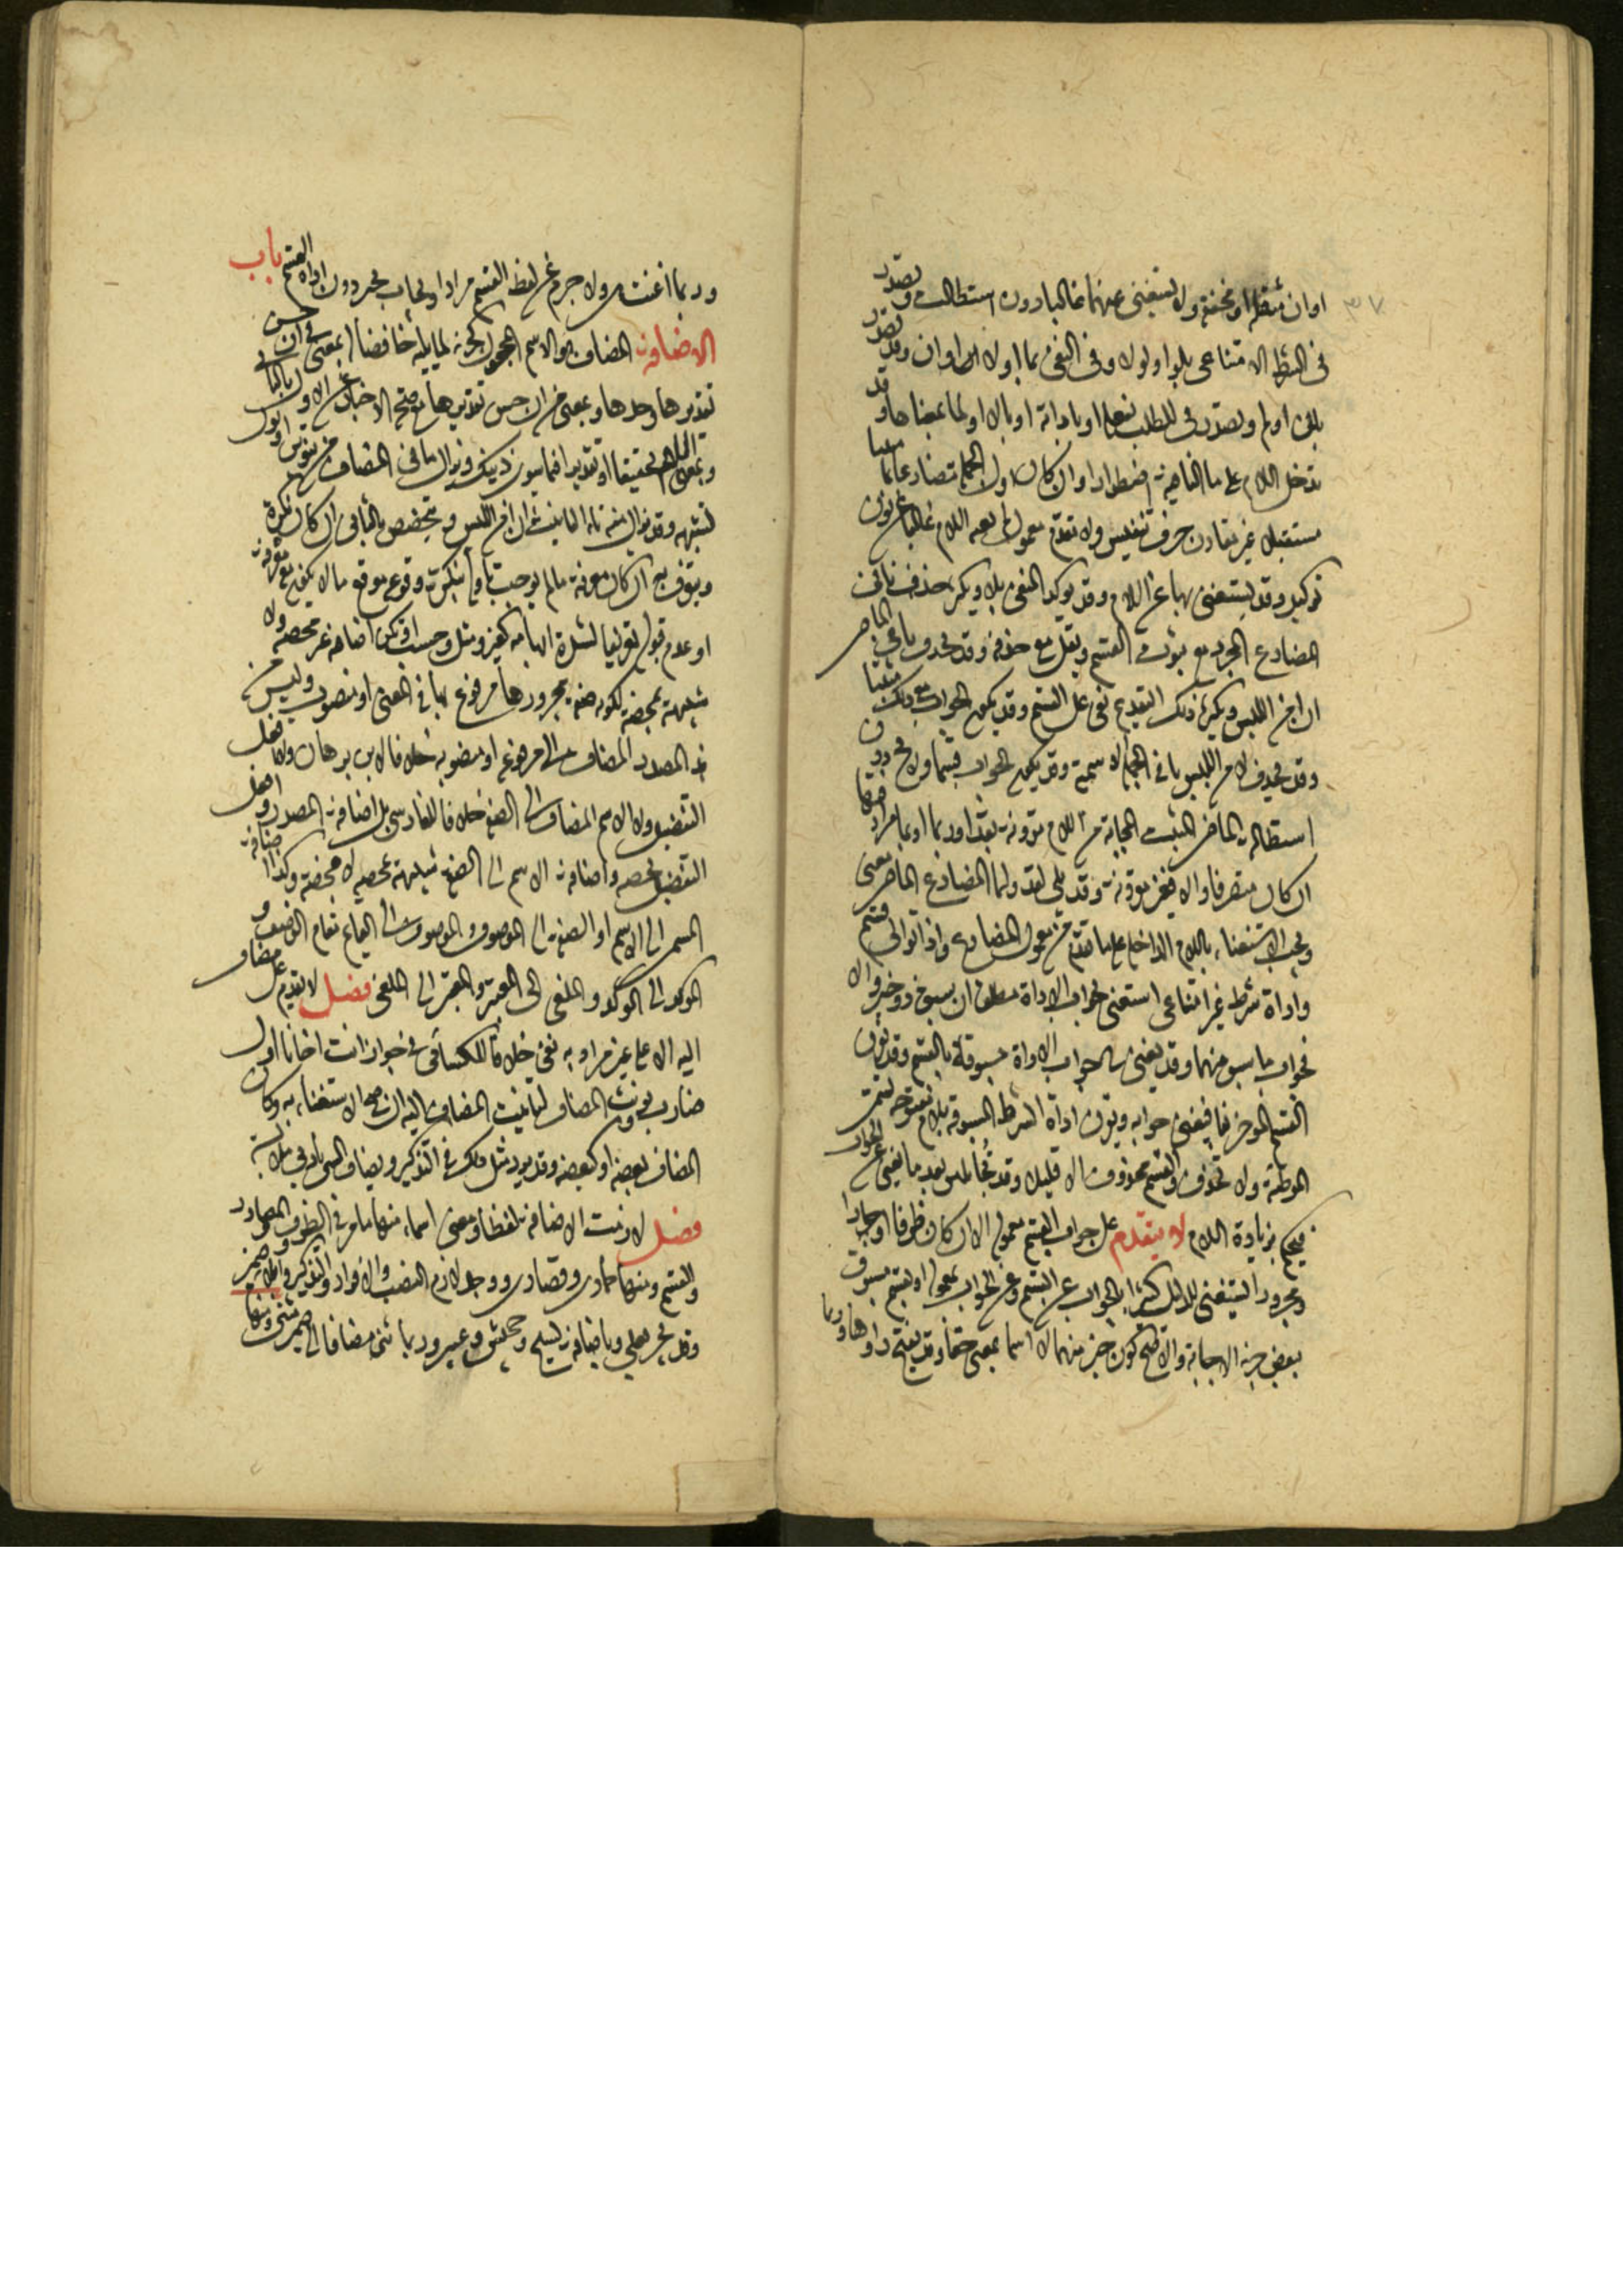 ٣٧
او ان مثقلة او مخففة ولا يستغنى عنهما غالبا دون استطالة وتصدر
فى الشرط الامتناعى بلو او لولا وفى النفى بما او لا او ان وقد تصدر
بلن او لم وتصدر فى الطلب بفعله او باداته او بالا او لما بمعناها وقد
تدخل اللام على ما النافية اضطرارا وان كان اول الجملة مضارعا مثبتا
مستقبلا غير مقارن حرف تنفيس ولا مقدم معموله لم تغنه اللام غالبا عن نون
توكيد وقد يستغنى بها عن اللام وقد يؤكد المنفى بلا ويكثر حذف نافى
المضارع المجرد مع ثبوت القسم ويقل مع حذفه وقد يحذف نافى الماضى
ان امن اللبس وكثر ذلك لتقدم نفى على القسم وقد يكون الجواب مع ذلك مثبتا
وقد يحذف لامن اللبس نافى الجملة الاسمية وقد يكون الجواب قسما ولا يخلو دون
استطالة الماضى المثبت المجاب به من اللام مقرونة بقد او ربما او بما مرادفها
ان كان متصرفا والا فغير مقرونة وقد يلى لقد ولبما المضارع الماضى معنى
ويجب الاستغناء باللام الداخلة على ما تقدم من معمول المضارع واذا توالى قسم
واداة شرط غير امتناعى استغنى بجواب الاداة مطلقا ان سبق ذو خبر والا
فجواب ما سبق منهما وقد يغنى جواب الاداة مسبوقة بالقسم وقد تقرن
القسم المؤخر بفا فيغنى جوابه وتقرن اداة الشرط المسبوقة بلام مفتوحة تسمى
الموطئة ولا تحذف والقسم محذوف الا قليلا وقد يجاء بلئن بعد ما يغنى عن الجواب
فيحكم بزيادة اللام لا يتقدم على جواب القسم معموله الا ان كان ظرفا او جارا
ومجرورا ويستغنى للدليل كثيرا بالجواب عن القسم وعن الجواب بمعموله او بقسم مسبوق
ببعض حروف الاجابة والاصح كون جير منها لا اسما بمعنى حقا وقد تفتح راؤها وربما
وربما اغنت هى ولا جرم عن لفظ القسم مرادا وقد يجاب بجير دون ارادة القسم باب
الاضافة المضاف هو الاسم المجعول كجزء لما يليه خافضا له بمعنى فى ان حسن
تقديرها وحدها وبمعنى من ان حسن تقديرها مع صحة الاخبار عن الاول بالثانى
وبمعنى اللام تحقيقا او تقديرا فيما سوى ذينك ويزال ما فى المضاف من تنوين او نون
تشبهه وقد يزال منه تاء التانيث ان امن اللبس ويتخصص بالثانى ان كان نكرة
ويتعرف به ان كان معرفة ما لم يوجب تاوله بنكرة وقوعه موقع ما لا يكون معرفة
او عدم قبوله تعريفا لشدة ابهامه كغير ومثل وحسب او تكن اضافته غير محضة ولا
شبيهة بمحضة لكونه صفة مجرورها مرفوع بها فى المعنى او منصوب وليس من
هذا المصدر المضاف الى مرفوعه او منصوبه خلافا لابن برهان ولا افعل
التفضيل ولا الاسم المضاف الى الصفة خلافا للفارسى بل اضافة المصدر وافعل
التفضيل محضة واضافة الاسم الى الصفة شبيهة بمحضة لا محضة وكذا اضافة
المسمى الى الاسم او الصفة الى الموصوف والموصوف الى القائم مقام الوصف و
الموكد الى الموكد والملغى الى المعتبر والمعتبر الى الملغى فصل لا يقدم على مضاف
اليه الا على غير مرادا به نفى خلافا للكسائى فى جواز انت اخانا اول
ضارب ويونث المضاف لتانيث المضاف اليه ان صح الاستغناء به وكان
المضاف بعضه او كبعضه وقد يرد مثل ذلك فى التذكير ويضاف الشى بادنى ملابسة
فصل لازمت الاضافة لفظا ومعنى اسماء منها ما مر فى الظروف والمصادر
والقسم ومنها حمادى وقصارى ووحد لازم النصب والافراد والتذكير واضافة ضمير
وقد يجر بعلى وباضافة نسيج وجحيش وعيير وربما ثنى مضافا الى ضمير مثنى ومنها